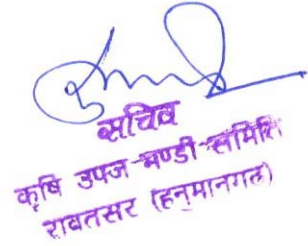 सचिव
कृषि उपज मण्डी समिति
रावतसर (हनुमानगढ़)